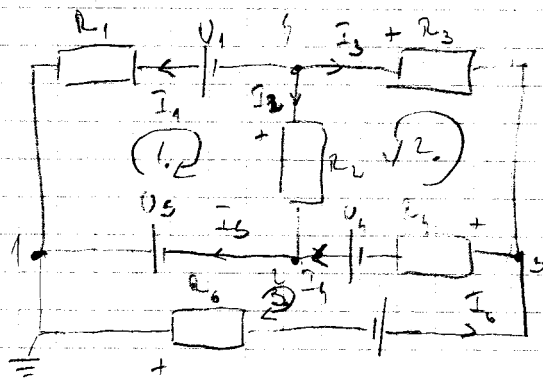 R₁ U₁ 4 I₃ + R₃
I₁ I₂ +
1. R₂ 2.
U₅ I₅ U₄ R₄ +
1 2 I₄ 3
R₆ 3 I₆
+